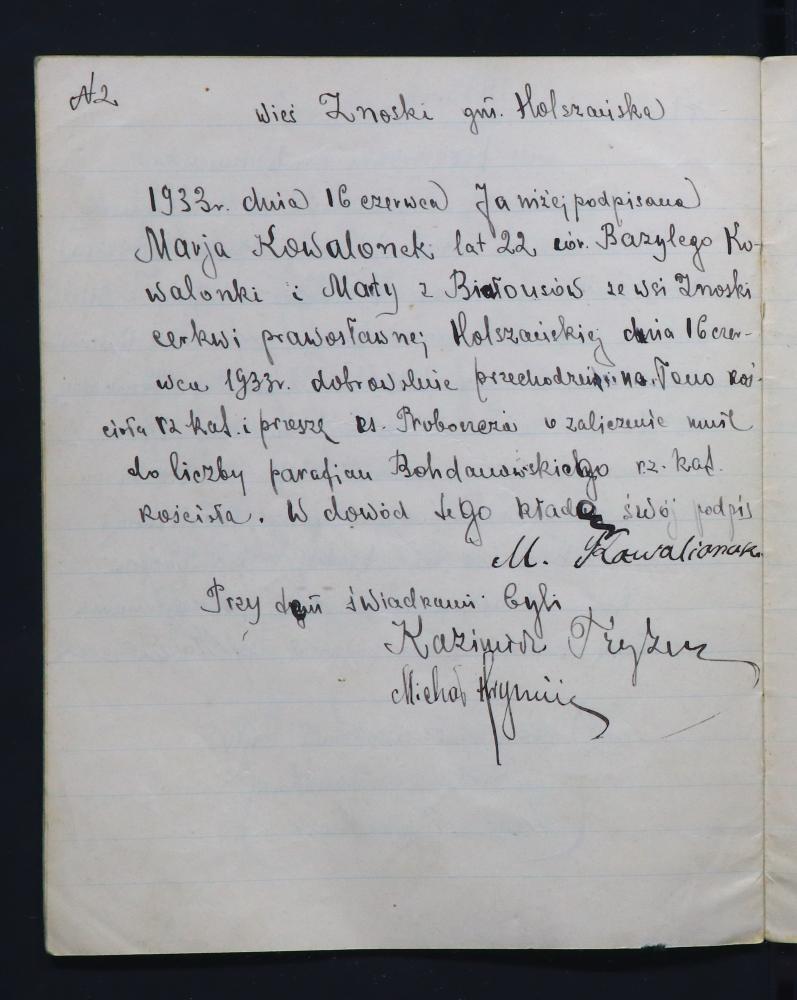 №2
wieś Znoski gm. Holszańska
1933r. dnia 16 czerwca Ja niżej podpisana
Marja Kowalonek lat 22 cór. Bazylego Ko-
walonki i Marty z Białousów ze wsi Znoski
cerkwi prawosławnej Holszańskiej dnia 16 czer-
wca 1933r. dobrowolnie przechodzi na łono koś-
cioła rz kat. i proszę ks. Proboszcza o zaliczenie mnie
do liczby parafian Bohdanowskiego rz. kat.
kościoła. W dowód tego kładę swój podpis
M. Kowalionak
Przy tem świadkami byli
Kazimierz
Michał